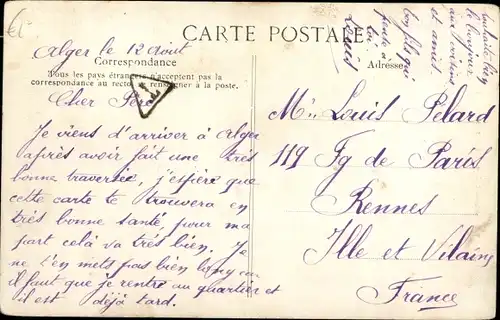 CARTE POSTALE
Alger le 12 Août
Correspondance
Tous les pays étrangers n'acceptent pas la
correspondance au recto, se renseigner à la poste.
Adresse
Cher Père
T
Je viens d'arriver à Alger
après avoir fait une très
bonne traversée, j'espère que
cette carte te trouvera en
très bonne santé, pour ma
part celà va très bien. Je
ne t'en mets pas bien long car
il faut que je rentre au quartier et
il est déjà tard.
le bonjour
aux voisins
et amis
ton fils qui
pense à
toi
Louis
Mr Louis Pelard
119 Fg de Paris
Rennes
Ille et Vilaine
France